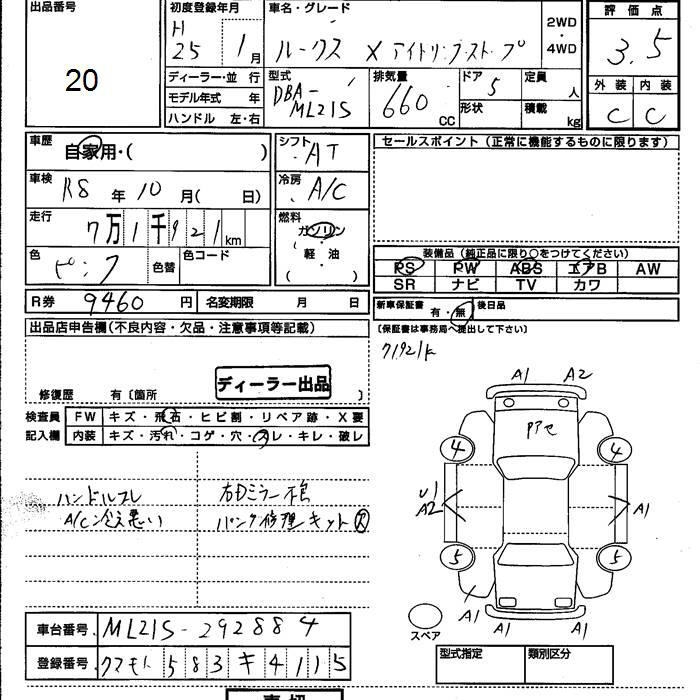 出品番号
20
初度登録年月
H 25 年 1月
車名・グレード
ルークス X アイドリングストップ
2WD・4WD
評価点
3.5
外装 内装
C C
ディーラー・並行
モデル年式 年
ハンドル 左・右
型式
DBA-ML21S
排気量
660 CC
ドア
5
形状
定員
人
積載
kg
車歴
自家用・( )
車検
R8 年 10 月( 日)
走行
7万1千921km
色
ピンク
色替
色コード
シフト
AT
冷房
A/C
燃料
ガソリン
・
軽油
( )
セールスポイント (正常に機能するものに限ります)
装備品 (純正品に限り○をつけてください)
PS PW ABS エアB AW
SR ナビ TV カワ
R券 9460 円 名変期限 月 日
新車保証書 有・無 後日品
(保証書は事務局へ提出して下さい)
71921k
出品店申告欄(不良内容・欠品・注意事項等記載)
修復歴 有〔箇所 〕
ディーラー出品
検査員
記入欄
FW キズ・飛石・ヒビ割・リペア跡・X要
内装 キズ・汚れ・コゲ・穴・スレ・キレ・破レ
ハンドルスレ
A/C冷え悪い
右Dミラー
パンク修理キット
A1 A2
4 4
U1
A2
A1
5 5
A1 A1 A1
スペア
車台番号 ML21S-292884
登録番号 クマモト 583 キ 4115
型式指定 類別区分